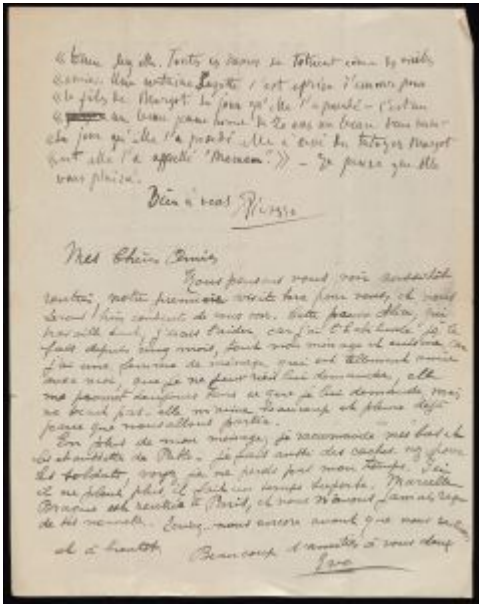 « chez elle. Toutes ces dames se tutoient comme de vieilles
« amies. Une certaine s'est éprise d'amour pour
« le fils de Margot le jour qu'elle l'a
« un beau jeune homme de 20 ans un beau
le jour qu'elle l'a elle a Margot
et elle l'a appellé "Meman" » — Je pense que elle
vous plaira.
Bien à vous Picasso
Mes Chers Amis
Nous pensons vous voir aussitôt
rentrés, notre première visite sera pour vous, et nous
serons bien content de vous voir. Cette pauvre Alice, qui
travaille tant, j'irais l'aider, car j'ai l'habitude je le
fais depuis cinq mois, tout mon ménage et cuisine car
j'ai une femme de ménage qui est tellement amie
avec moi, que je ne peux rien lui demander, elle
me promet toujours tout ce que je lui demande, mais
ne vient pas. elle m'aime beaucoup et pleure déjà
parce que nous allons partir.
En plus de mon ménage, je raccommode mes bas et
les chaussettes de Pablo. je fais aussi des caches nez pour
les soldats, voyez je ne perds pas mon temps. Ici
il ne pleut plus il fait un temps superbe. Marcelle
Braque est rentrée à Paris, et nous n'avons jamais reçu
de ses nouvelles. Ecrivez-nous encore avant que nous
et à bientôt. Beaucoup d'amitiés à vous deux
Eva